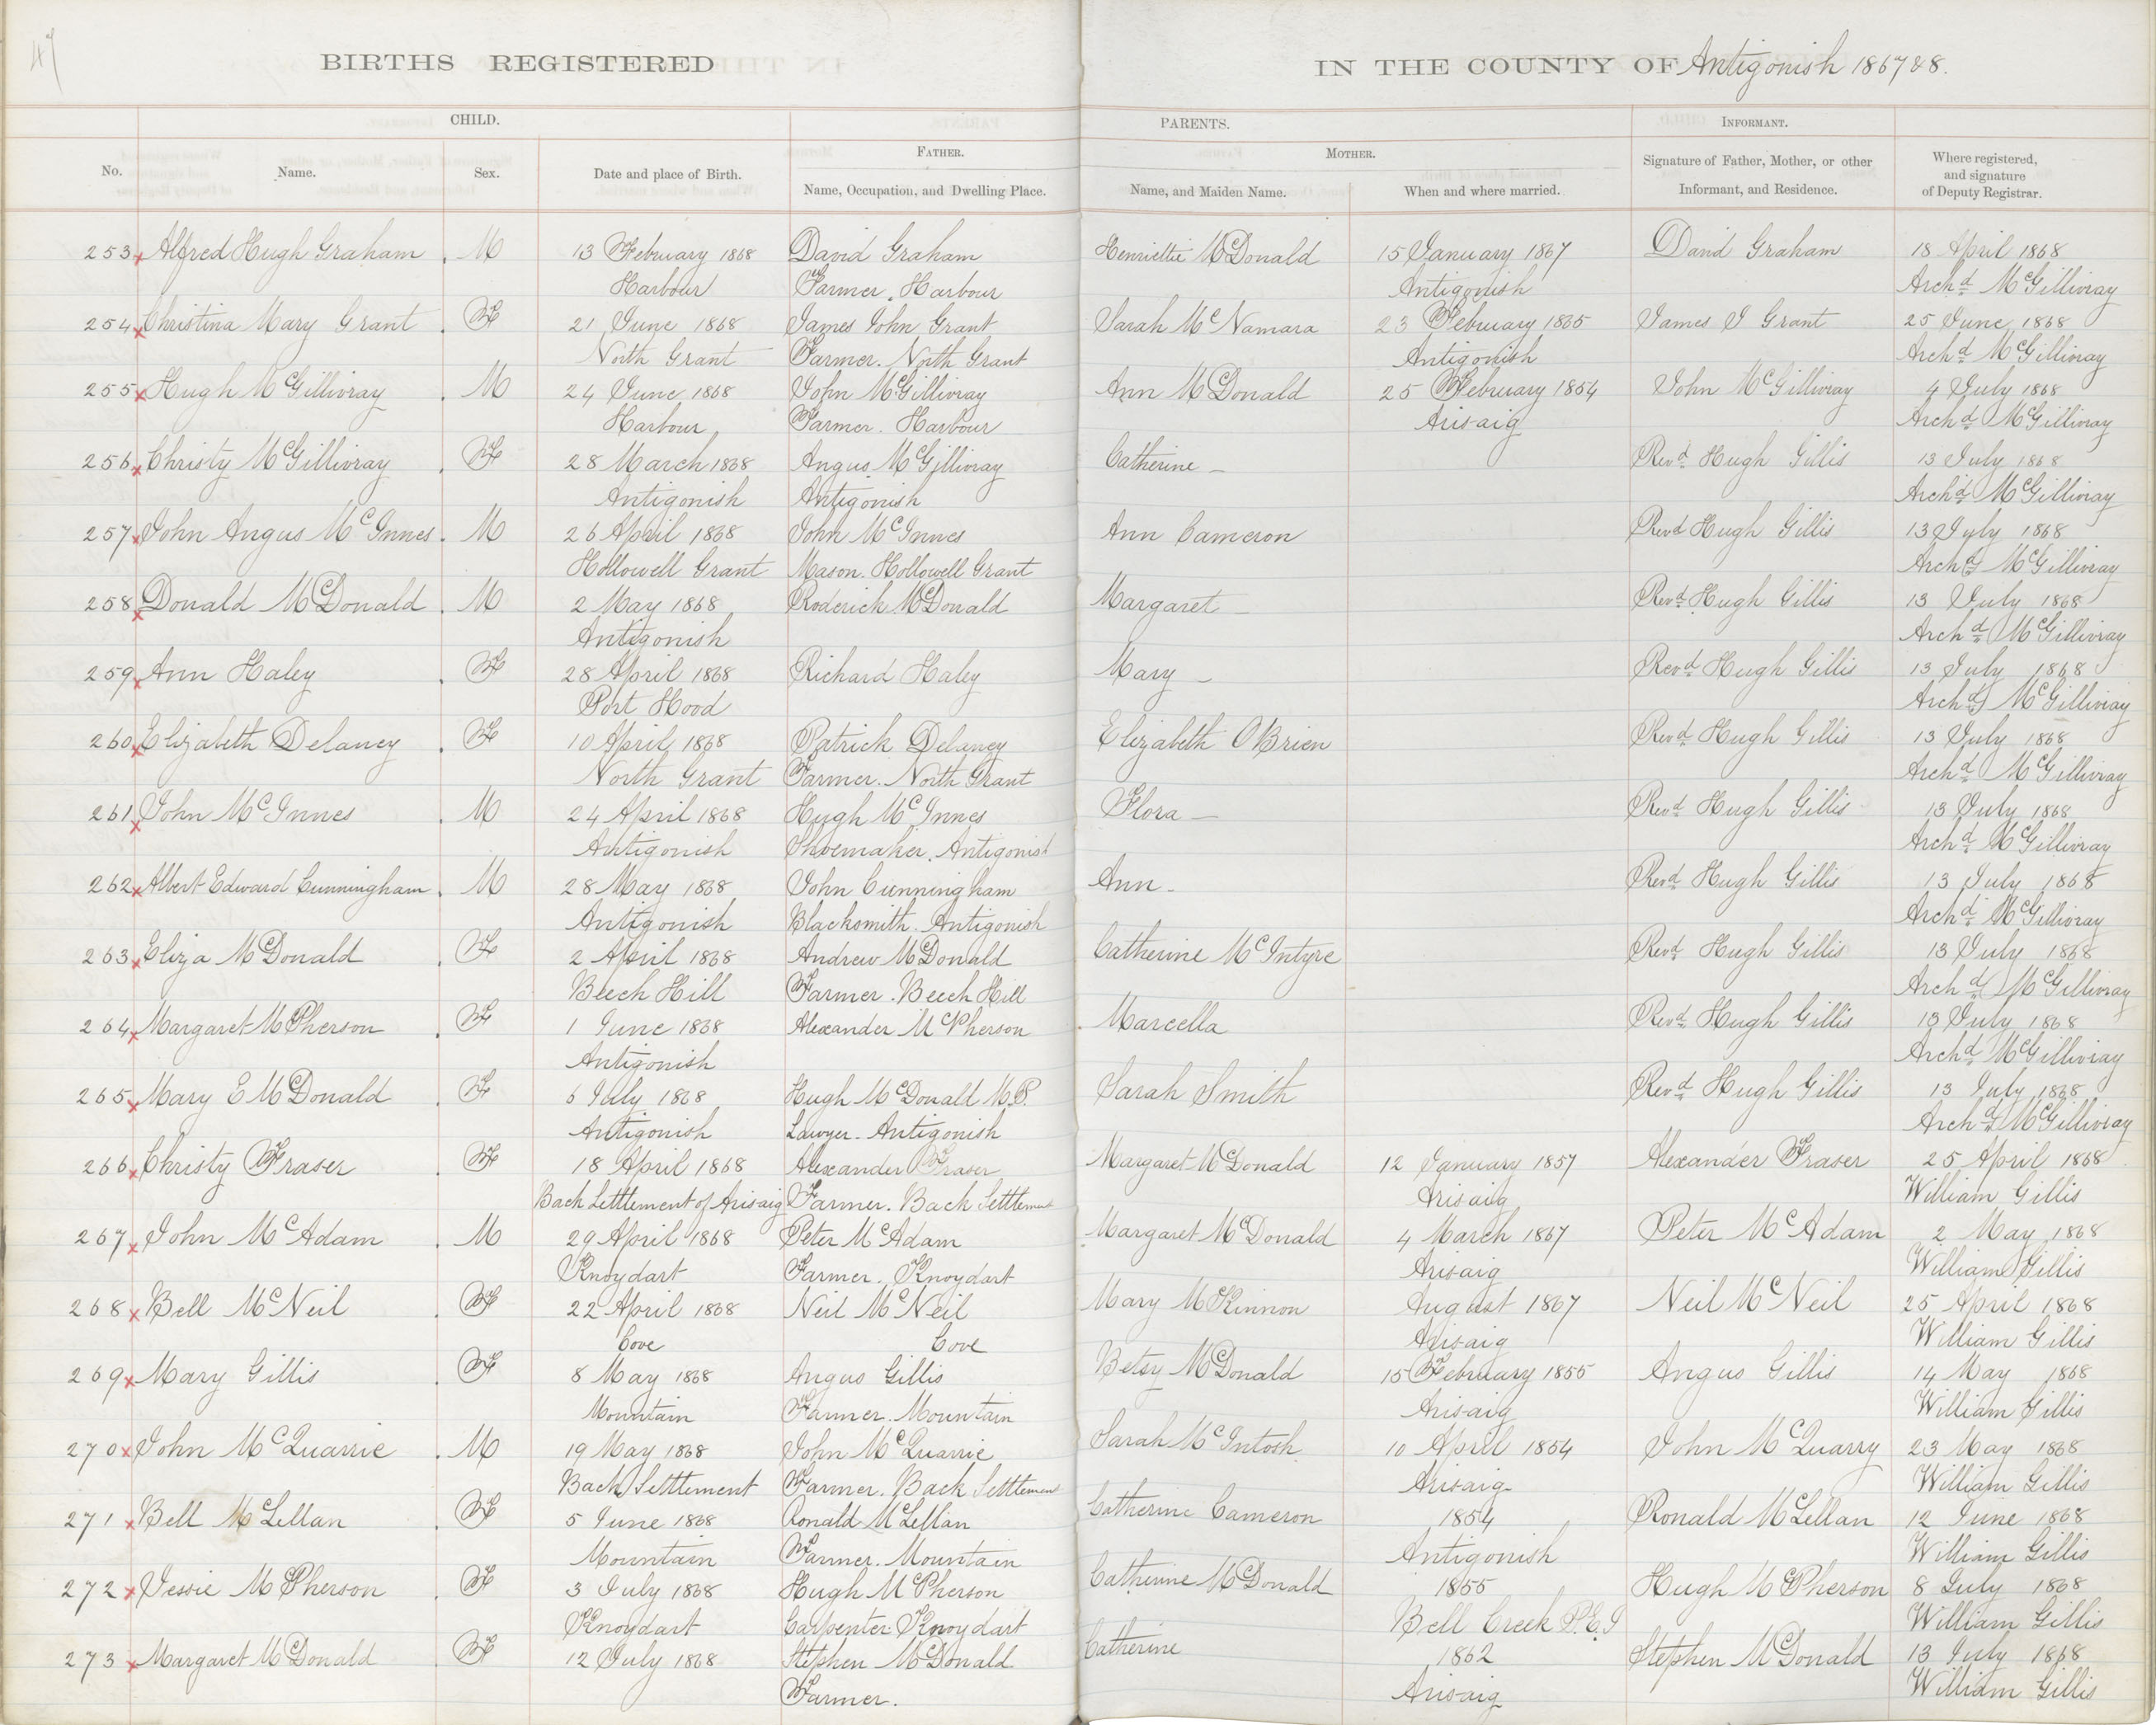 47
BIRTHS REGISTERED IN THE COUNTY OF Antigonish 1867 & 8.
CHILD. PARENTS. INFORMANT.
FATHER. MOTHER.
No. Name. Sex. Date and place of Birth. Name, Occupation, and Dwelling Place. Name, and Maiden Name. When and where married. Signature of Father, Mother, or other Informant, and Residence. Where registered, and signature of Deputy Registrar.
253 x Alfred Hugh Graham . M 13 February 1868 David Graham Henriettie McDonald 15 January 1867 David Graham 18 April 1868
Harbour Farmer. Harbour Antigonish Archd McGillivray
254 x Christina Mary Grant . F 21 June 1868 James John Grant Sarah McNamara 23 February 1865 James J Grant 25 June 1868
North Grant Farmer. North Grant Antigonish Archd McGillivray
255 x Hugh McGillivray . M 24 June 1868 John McGillivray Ann McDonald 25 February 1854 John McGillivray 4 July 1868
Harbour Farmer. Harbour Arisaig Archd McGillivray
256 x Christy McGillivray . F 28 March 1868 Angus McGillivray Catherine – Revd Hugh Gillis 13 July 1868
Antigonish Antigonish Archd McGillivray
257 x John Angus McInnes . M 26 April 1868 John McInnes Ann Cameron Revd Hugh Gillis 13 July 1868
Hollowell Grant Mason. Hollowell Grant Archd McGillivray
258 x Donald McDonald . M 2 May 1868 Roderick McDonald Margaret – Revd Hugh Gillis 13 July 1868
Antigonish Archd McGillivray
259 x Ann Haley . F 28 April 1868 Richard Haley Mary – Revd Hugh Gillis 13 July 1868
Port Hood Archd McGillivray
260 x Elizabeth Delaney . F 10 April 1868 Patrick Delaney Elizabeth OBrien Revd Hugh Gillis 13 July 1868
North Grant Farmer. North Grant Archd McGillivray
261 x John McInnes . M 24 April 1868 Hugh McInnes Flora – Revd Hugh Gillis 13 July 1868
Antigonish Shoemaker. Antigonish Archd McGillivray
262 x Albert Edward Cunningham . M 28 May 1868 John Cunningham Ann – Revd Hugh Gillis 13 July 1868
Antigonish Blacksmith. Antigonish Archd McGillivray
263 x Eliza McDonald . F 2 April 1868 Andrew McDonald Catherine McIntyre Revd Hugh Gillis 13 July 1868
Beech Hill Farmer. Beech Hill Archd McGillivray
264 x Margaret McPherson . F 1 June 1868 Alexander McPherson Marcella Revd Hugh Gillis 13 July 1868
Antigonish Archd McGillivray
265 x Mary E McDonald . F 6 July 1868 Hugh McDonald M.P. Sarah Smith Revd Hugh Gillis 13 July 1868
Antigonish Lawyer. Antigonish Archd McGillivray
266 x Christy Fraser . F 18 April 1868 Alexander Fraser Margaret McDonald 12 January 1857 Alexander Fraser 25 April 1868
Back Settlement of Arisaig Farmer. Back Settlement Arisaig William Gillis
267 x John McAdam . M 29 April 1868 Peter McAdam Margaret McDonald 4 March 1867 Peter McAdam 2 May 1868
Knoydart Farmer. Knoydart Arisaig William Gillis
268 x Bell McNeil . F 22 April 1868 Neil McNeil Mary McKinnon August 1867 Neil McNeil 25 April 1868
Cove Cove Arisaig William Gillis
269 x Mary Gillis . F 8 May 1868 Angus Gillis Betsy McDonald 15 February 1855 Angus Gillis 14 May 1868
Mountain Farmer. Mountain Arisaig William Gillis
270 x John McQuarrie . M 19 May 1868 John McQuarrie Sarah McIntosh 10 April 1854 John McQuarry 23 May 1868
Back Settlement Farmer. Back Settlement Arisaig William Gillis
271 x Bell McLellan . F 5 June 1868 Ronald McLellan Catherine Cameron 1854 Ronald McLellan 12 June 1868
Mountain Farmer. Mountain Antigonish William Gillis
272 x Jessie McPherson . F 3 July 1868 Hugh McPherson Catherine McDonald 1855 Hugh McPherson 8 July 1868
Knoydart Carpenter Knoydart Bell Creek P.E.I William Gillis
273 x Margaret McDonald . F 12 July 1868 Stephen McDonald Catherine 1862 Stephen McDonald 13 July 1868
Farmer. Arisaig William Gillis